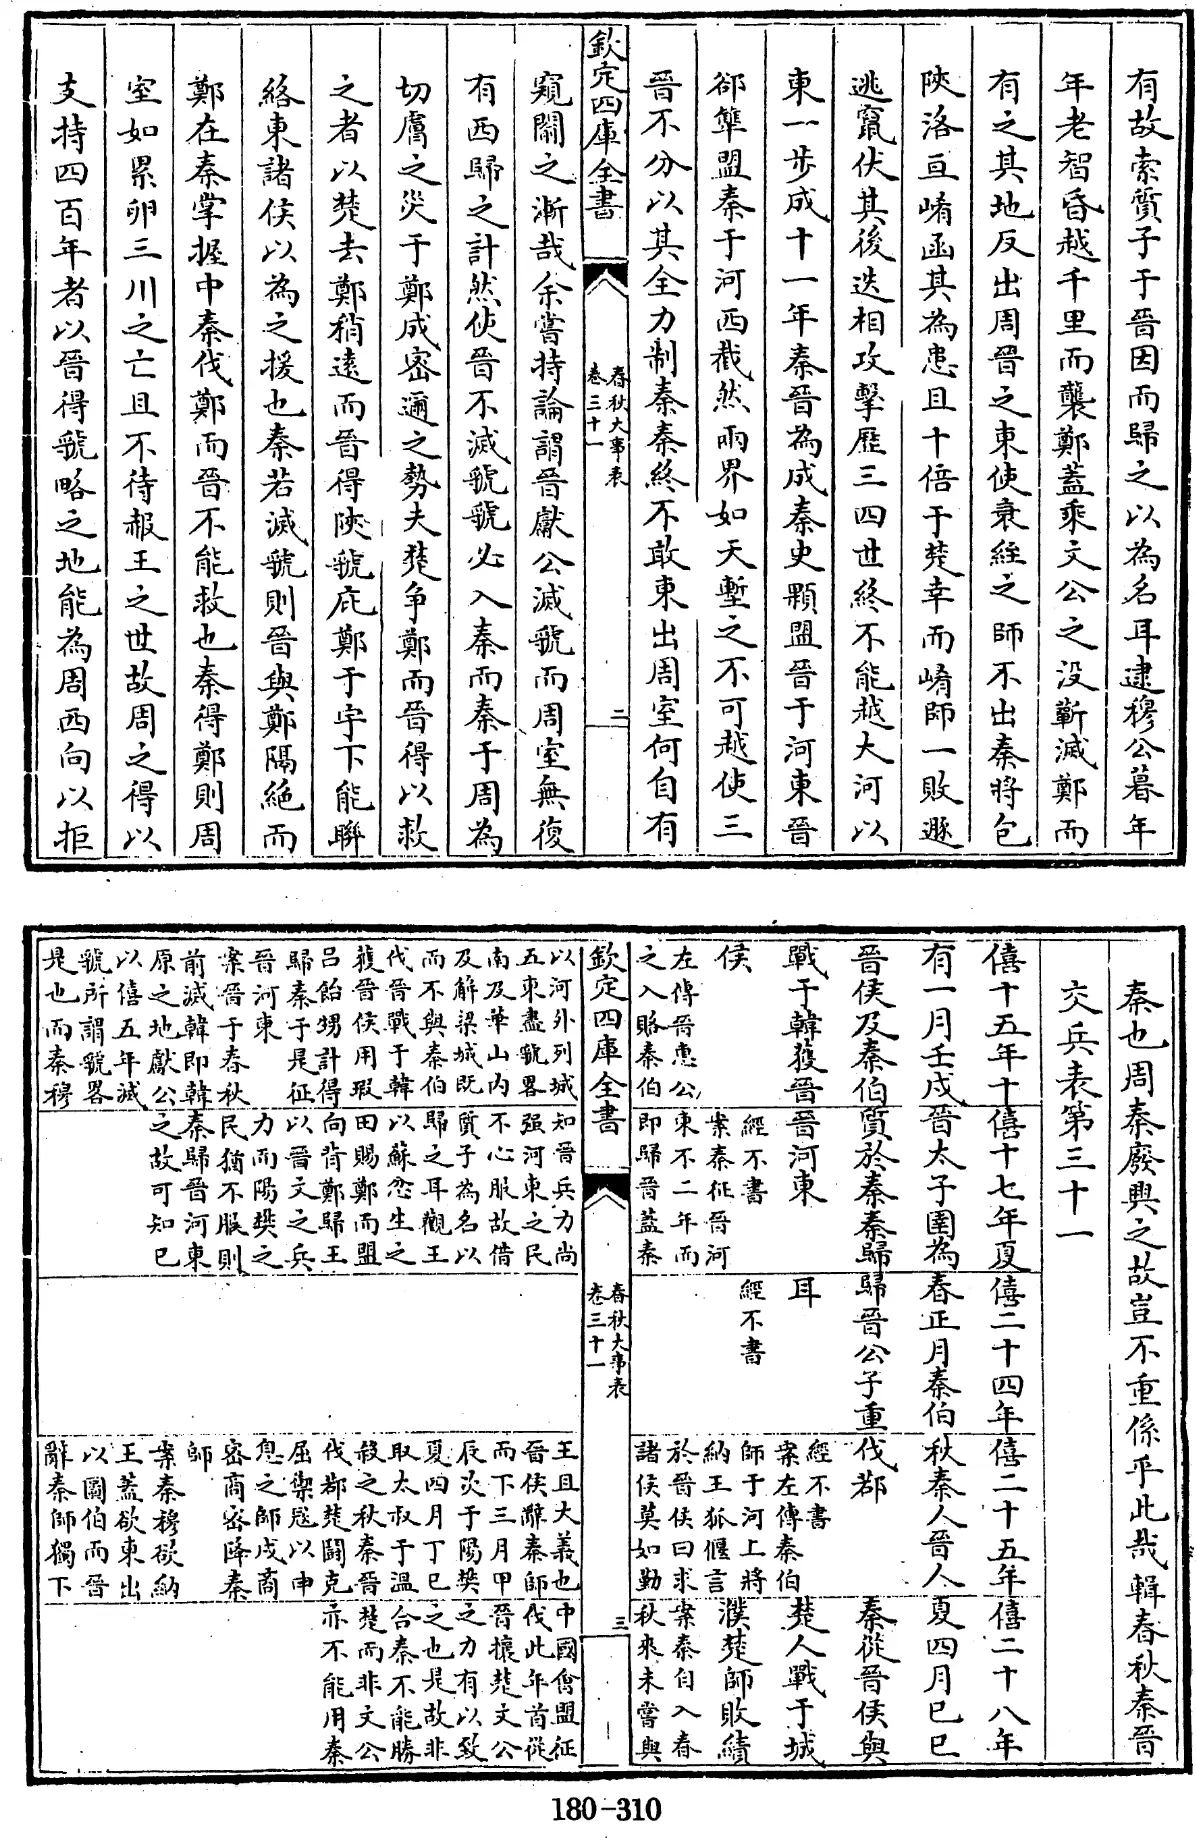 有故索質子于晉因而歸之以為名耳逮穆公暮年
年老智昏越千里而襲鄭蓋乘文公之没蘄滅鄭而
有之其地反出周晉之東使衰絰之師不出秦將包
陜洛亘崤函其為患且十倍于楚幸而崤師一敗遯
逃竄伏其後迭相攻擊歴三四世終不能越大河以
東一步成十一年秦晉為成秦史顆盟晉于河東晉
郤犨盟秦于河西截然兩界如天塹之不可越使三
晉不分以其全力制秦秦終不敢東出周室何自有
欽定四庫全書
春秋大事表
卷三十一
二
窺闚之漸哉余嘗持論謂晉獻公滅虢而周室無復
有西歸之計然使晉不滅虢虢必入秦而秦于周為
切膚之災于鄭成密邇之勢夫楚争鄭而晉得以救
之者以楚去鄭稍遠而晉得陜虢庇鄭于宇下能聯
絡東諸侯以為之援也秦若滅虢則晉與鄭隔絶而
鄭在秦掌握中秦伐鄭而晉不能救也秦得鄭則周
室如累卵三川之亡且不待赧王之世故周之得以
支持四百年者以晉得虢略之地能為周西向以拒
秦也周秦廢興之故豈不重係乎此哉輯春秋秦晉
交兵表第三十一
僖十五年十
有一月壬戌
晉侯及秦伯
戰于韓獲晉
侯
左傳晉惠公
之入賂秦伯
以河外列城
五東盡虢畧
南及華山内
及解梁城既
而不與秦伯
伐晉戰于韓
獲晉侯用瑕
呂飴甥計得
歸秦于是征
晉河東
案晉于春秋
前滅韓即韓
原之地獻公
以僖五年滅
虢所謂虢畧
是也而秦穆
僖十七年夏
晉太子圉為
質於秦秦歸
晉河東
經不書
案秦征晉河
東不二年而
即歸晉蓋秦
知晉兵力尚
强河東之民
不心服故借
質子為名以
歸之耳觀王
以蘇忿生之
田賜鄭而盟
向背鄭歸王
以晉文之兵
力而陽樊之
民猶不服則
秦歸晉河東
之故可知已
僖二十四年
春正月秦伯
歸晉公子重
耳
經不書
僖二十五年
秋秦人晉人
伐鄀
經不書
案左傳秦伯
師于河上將
納王狐偃言
於晉侯曰求
諸侯莫如勤
王且大義也
晉侯辭秦師
而下三月甲
辰次于陽樊
夏四月丁巳
取太叔于溫
殺之秋秦晉
伐鄀楚鬬克
屈禦寇以申
息之師戍商
密商密降秦
師
案秦穆欲納
王蓋欲東出
以圖伯而晉
辭秦師獨下
僖二十八年
夏四月己巳
秦從晉侯與
楚人戰于城
濮楚師敗績
案秦自入春
秋來未嘗與
中國會盟征
伐此年首從
晉攘楚文公
之力有以致
之也是故非
合秦不能勝
楚而非文公
亦不能用秦
欽定四庫全書
春秋大事表
卷三十一
三
180-310